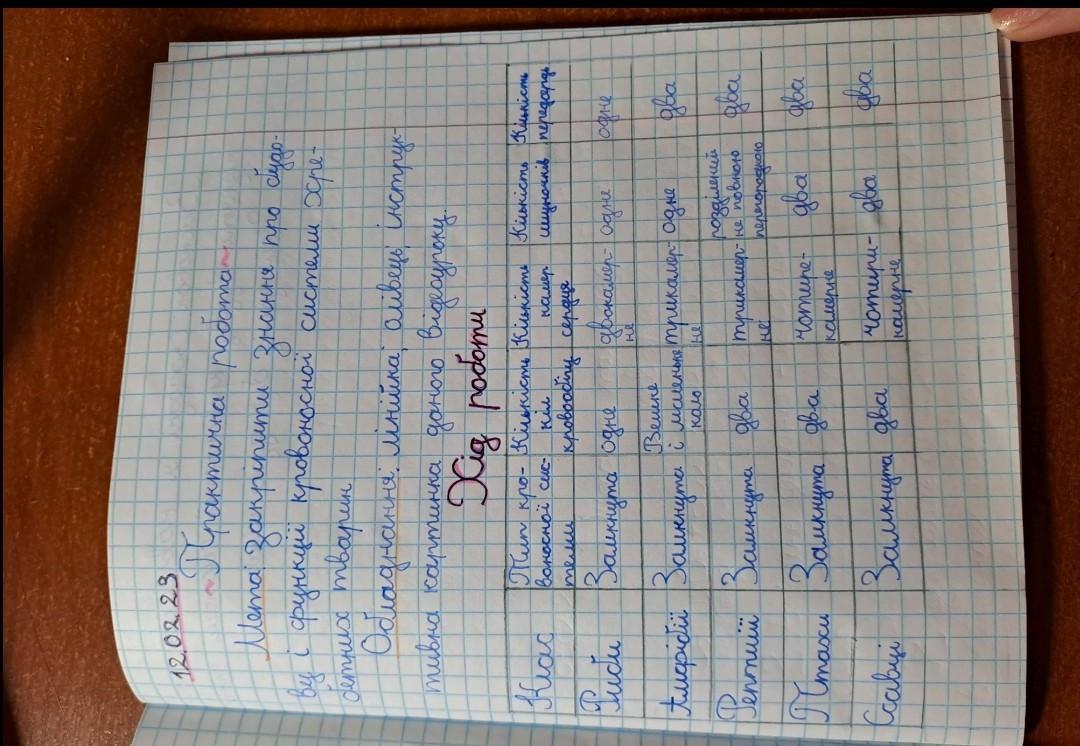 12.02.23
~ Практична робота ~
Мета: закріпити знання про будо-
ву і функції кровоносної системи хре-
бетних тварин
Обладнання: лінійка, олівець, інструк-
тивна картинка даного відеоуроку.
Хід роботи
Клас | Тип кро-воносної сис-теми | Кількість кіл кровообігу | Кількість камер серця | Кількість шлуночків | Кількість передсердь
Риби | Замкнута | одне | двокамер-не | одне | одне
Амфібії | Замкнута | Велике і маленьке коло | трикамер-не | одне | два
Рептилії | Замкнута | два | трикамер-не | розділений не повною перегородкою | два
Птахи | Замкнута | два | чотире-камерне | два | два
Савці | Замкнута | два | чотири-камерне | два | два